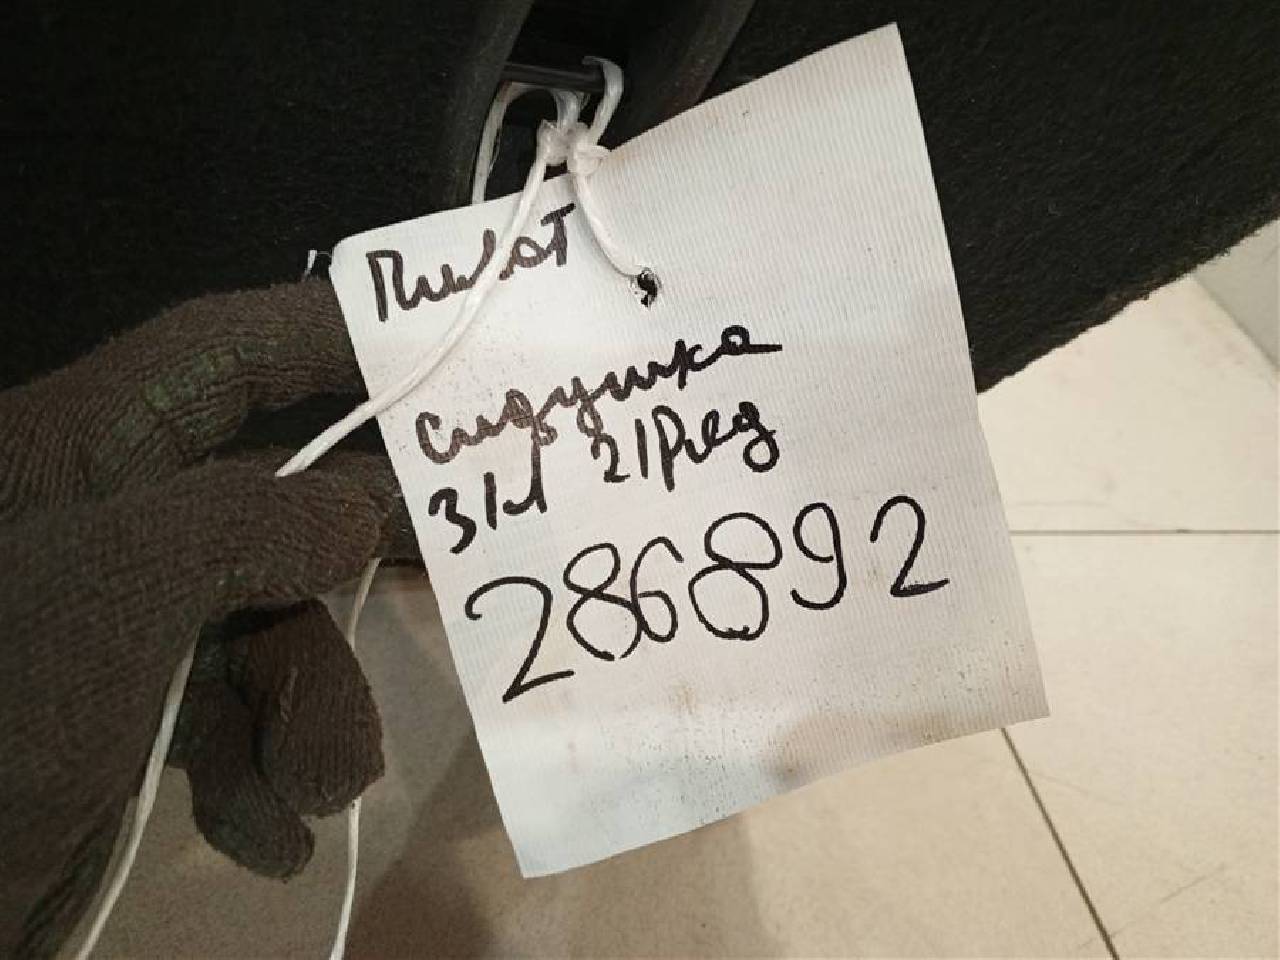 Пилот
Сидушка
3/л 2/Ряд
286892